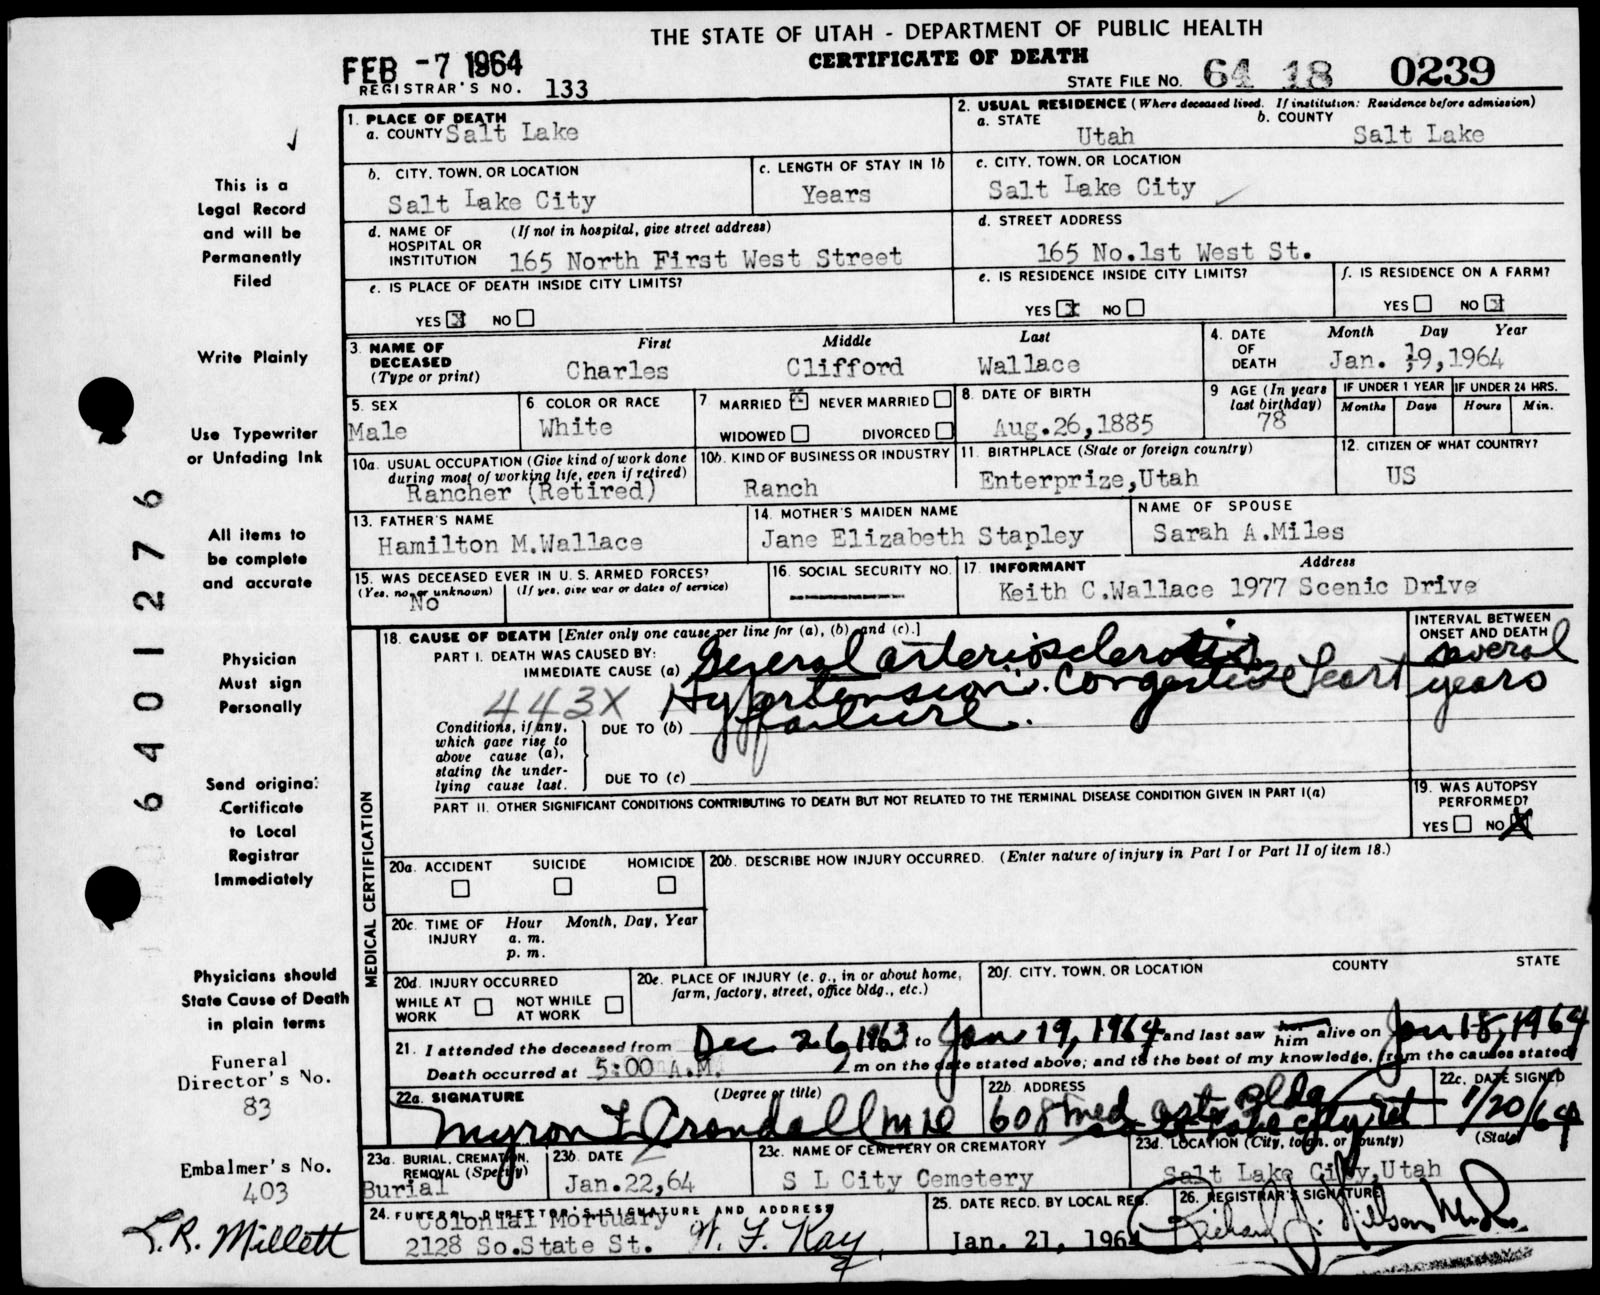 THE STATE OF UTAH - DEPARTMENT OF PUBLIC HEALTH
CERTIFICATE OF DEATH
FEB -7 1964
REGISTRAR'S NO. 133
STATE FILE NO. 64 18 0239
1. PLACE OF DEATH
a. COUNTY Salt Lake
2. USUAL RESIDENCE (Where deceased lived. If institution: Residence before admission)
a. STATE Utah
b. COUNTY Salt Lake
b. CITY, TOWN, OR LOCATION
Salt Lake City
c. LENGTH OF STAY IN 1b
Years
c. CITY, TOWN, OR LOCATION
Salt Lake City
d. NAME OF HOSPITAL OR INSTITUTION
(If not in hospital, give street address)
165 North First West Street
d. STREET ADDRESS
165 No.1st West St.
e. IS PLACE OF DEATH INSIDE CITY LIMITS?
YES X NO
e. IS RESIDENCE INSIDE CITY LIMITS?
YES X NO
f. IS RESIDENCE ON A FARM?
YES NO X
3. NAME OF DECEASED
(Type or print)
First Middle Last
Charles Clifford Wallace
4. DATE OF DEATH
Month Day Year
Jan. 19,1964
5. SEX
Male
6. COLOR OR RACE
White
7. MARRIED X NEVER MARRIED
WIDOWED DIVORCED
8. DATE OF BIRTH
Aug.26,1885
9 AGE (In years last birthday)
78
IF UNDER 1 YEAR
Months Days
IF UNDER 24 HRS.
Hours Min.
10a. USUAL OCCUPATION (Give kind of work done during most of working life, even if retired)
Rancher (Retired)
10b. KIND OF BUSINESS OR INDUSTRY
Ranch
11. BIRTHPLACE (State or foreign country)
Enterprize,Utah
12. CITIZEN OF WHAT COUNTRY?
US
13. FATHER'S NAME
Hamilton M.Wallace
14. MOTHER'S MAIDEN NAME
Jane Elizabeth Stapley
NAME OF SPOUSE
Sarah A.Miles
15. WAS DECEASED EVER IN U. S. ARMED FORCES?
(Yes, no, or unknown) (If yes, give war or dates of service)
No
16. SOCIAL SECURITY NO.
17 INFORMANT Address
Keith C.Wallace 1977 Scenic Drive
MEDICAL CERTIFICATION
18. CAUSE OF DEATH [Enter only one cause per line for (a), (b) and (c).]
PART I. DEATH WAS CAUSED BY:
IMMEDIATE CAUSE (a) General arteriosclerotic
Hypertension. Congestive heart
failure.
443X
Conditions, if any, which gave rise to above cause (a), stating the underlying cause last.
DUE TO (b)
DUE TO (c)
INTERVAL BETWEEN ONSET AND DEATH
several
years
PART II. OTHER SIGNIFICANT CONDITIONS CONTRIBUTING TO DEATH BUT NOT RELATED TO THE TERMINAL DISEASE CONDITION GIVEN IN PART I(a)
19. WAS AUTOPSY PERFORMED?
YES NO X
20a. ACCIDENT SUICIDE HOMICIDE
20b. DESCRIBE HOW INJURY OCCURRED. (Enter nature of injury in Part I or Part II of item 18.)
20c. TIME OF INJURY
Hour Month, Day, Year
a. m.
p. m.
20d. INJURY OCCURRED
WHILE AT WORK NOT WHILE AT WORK
20e. PLACE OF INJURY (e. g., in or about home, farm, factory, street, office bldg., etc.)
20f. CITY, TOWN, OR LOCATION COUNTY STATE
21. I attended the deceased from Dec 26, 1963 to Jan 19, 1964 and last saw her him alive on Jan 18, 1964
Death occurred at 5:00 A.M. m on the date stated above; and to the best of my knowledge, from the causes stated
22a. SIGNATURE (Degree or title)
Myron L Crandall MD
22b. ADDRESS
608 Med arts Bldg
Salt Lake City Ut
22c. DATE SIGNED
1/20/64
23a. BURIAL, CREMATION, REMOVAL (Specify)
Burial
23b DATE
Jan.22,64
23c. NAME OF CEMETERY OR CREMATORY
S L City Cemetery
23d. LOCATION (City, town, or county) (State)
Salt Lake City,Utah
24. FUNERAL DIRECTOR'S SIGNATURE AND ADDRESS
Colonial Mortuary
2128 So.State St. W. F. Kay
25. DATE RECD. BY LOCAL REG.
Jan. 21, 1964
26. REGISTRAR'S SIGNATURE
This is a
Legal Record
and will be
Permanently
Filed
Write Plainly
Use Typewriter
or Unfading Ink
All items to
be complete
and accurate
Physician
Must sign
Personally
Send original
Certificate
to Local
Registrar
Immediately
Physicians should
State Cause of Death
in plain terms
Funeral
Director's No.
83
Embalmer's No.
403
L.R. Millett
6401276